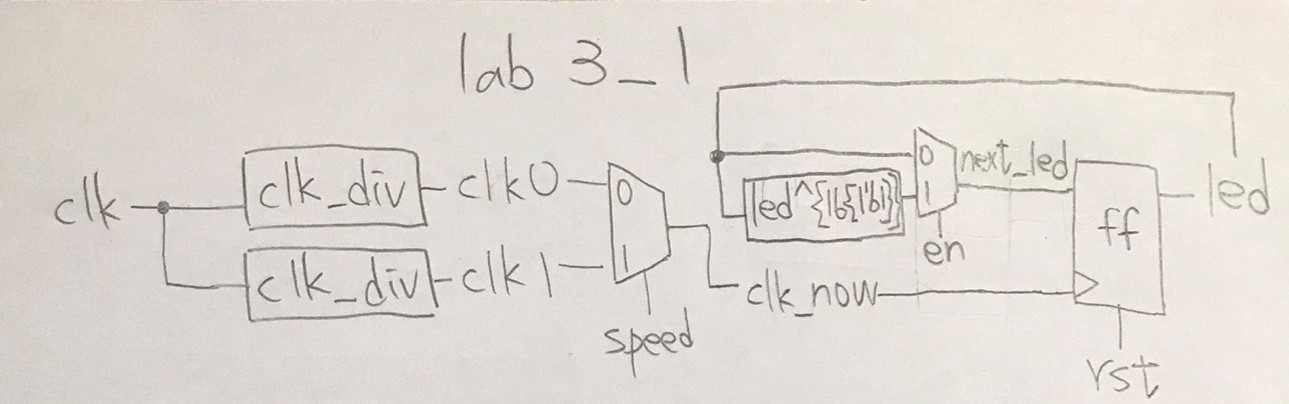 lab 3_1
clk
clk_div
clk0
clk_div
clk1
0
1
speed
clk_now
led^{16{1'b1}}
0
1
en
next_led
ff
rst
led